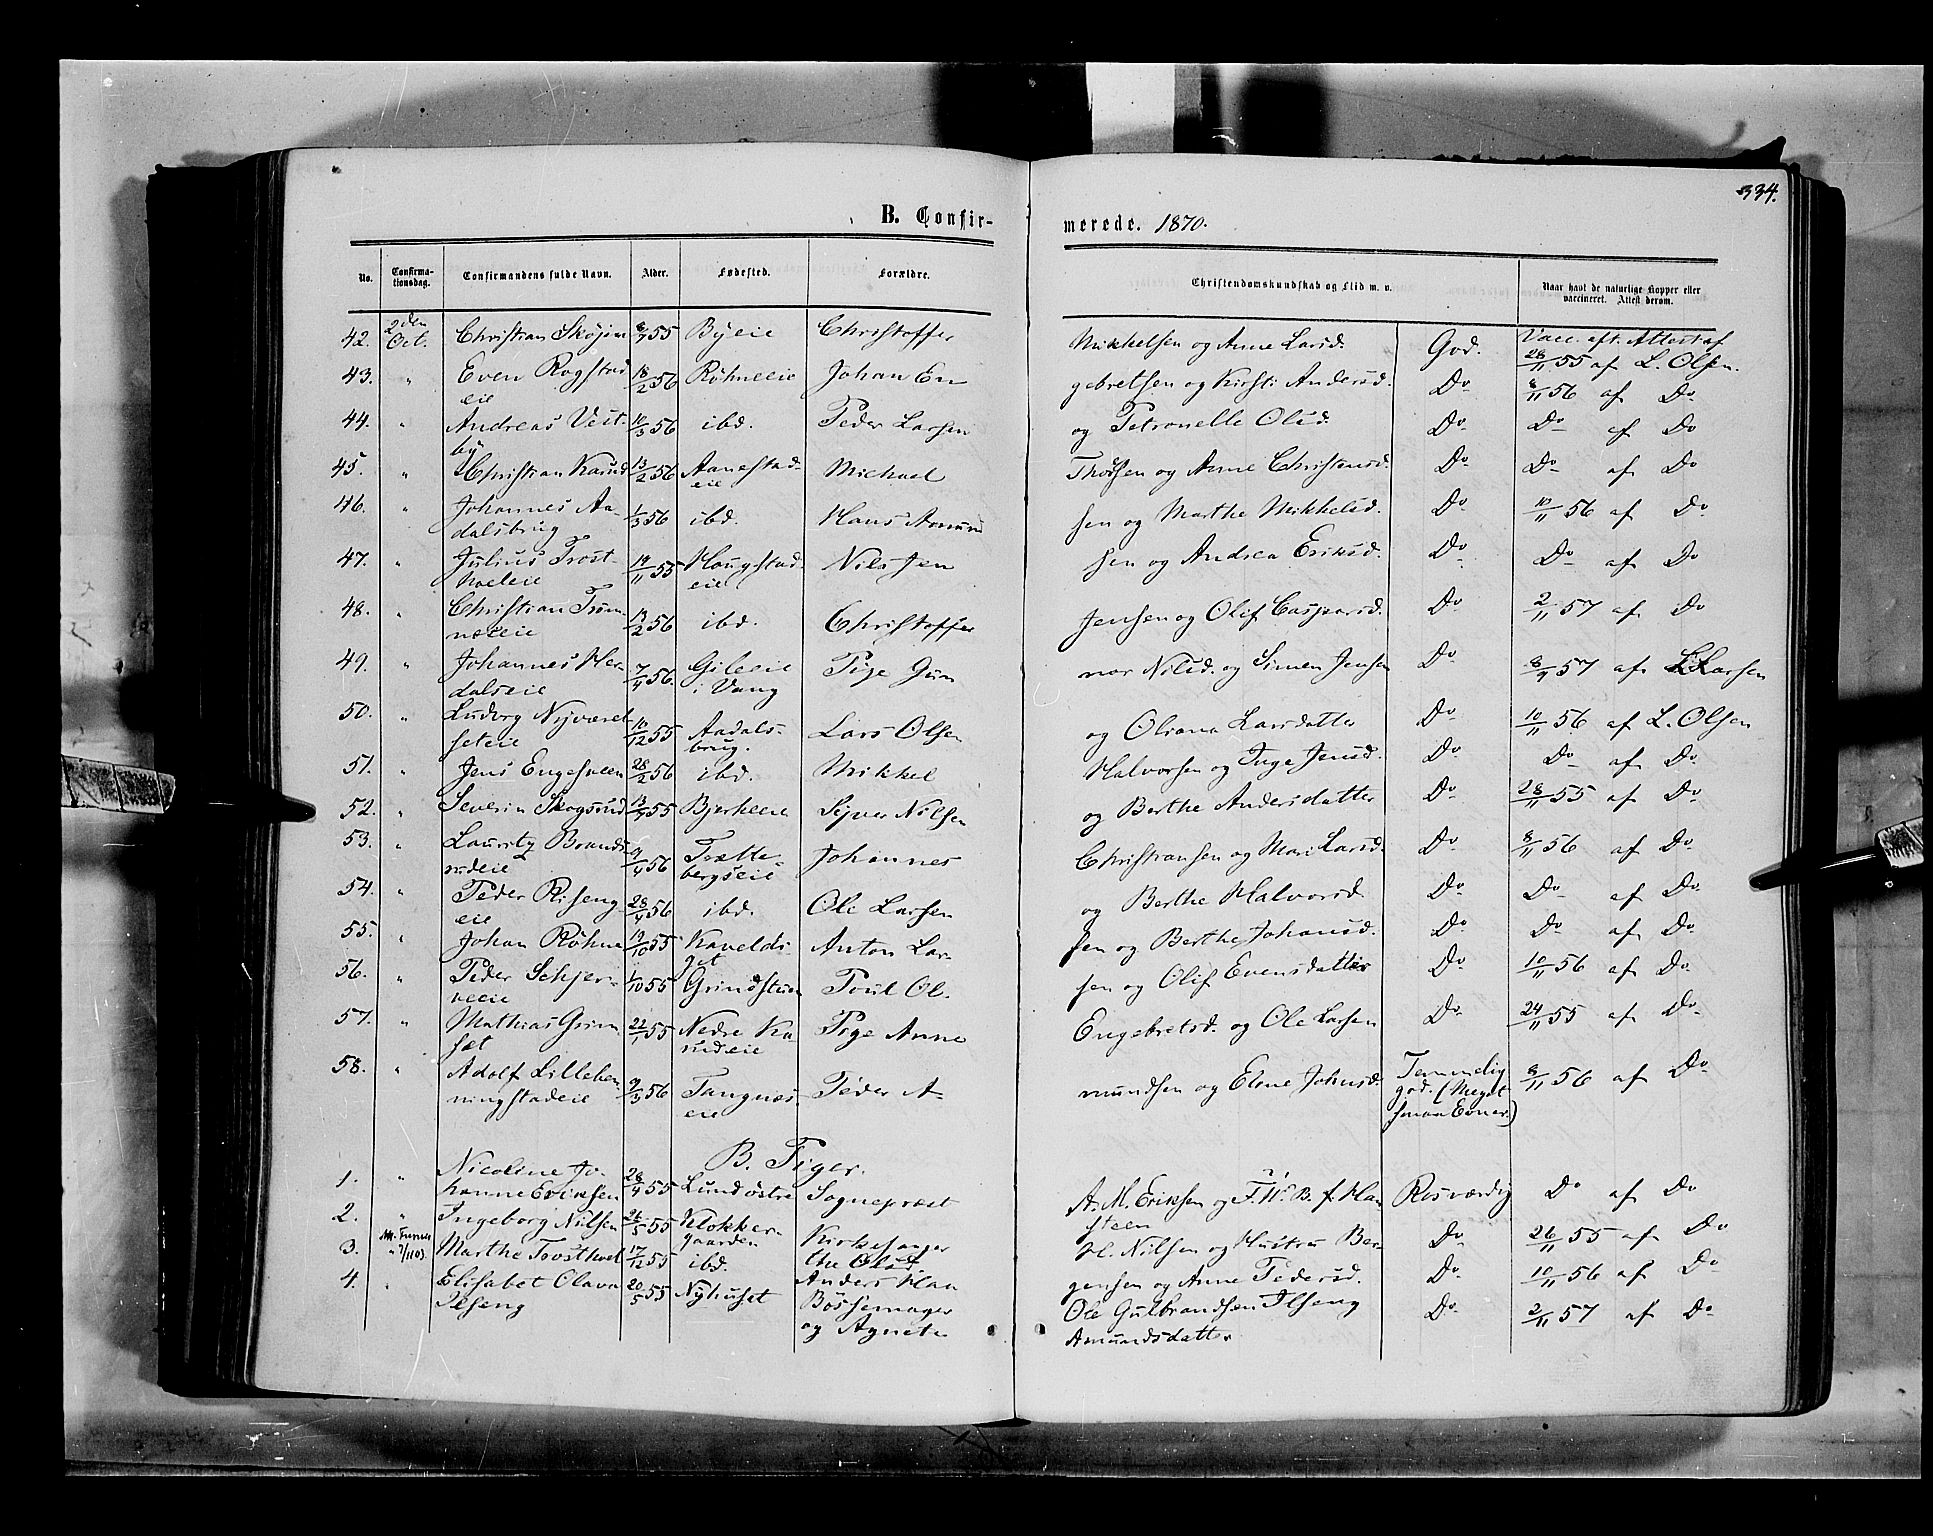 334.
B. Confir- merede. 1870.
No. Confirma-tionsdag. Confirmandens fulde Navn. Alder. Fødested. Forældre. Christendomskundskab og Flid m. v. Naar havt de naturlige Kopper eller vaccineret. Attest derom.
42. 2den Oct. Christian Skøjen 8/9 55 Byeie Christoffer Mikkelsen og Anne Larsd. God. Vacc. eft. Attest af 28/11 55 af L. Olsen.
43. " Even Rogstad eie 18/2 56 Röhneeie Johan En gebretsen og Kirsti Andersd. Do 8/11 56 af Do
44. " Andreas Vest- by 10/3 56 ibd. Peder Larsen og Petronelle Olsd. Do Do af Do
45. " Christian Karud 13/2 56 Aanestad- eie Michael Thorsen og Anne Christensd. Do Do af Do
46. " Johannes Aa- dalsbrug 1/3 56 ibd. Hans Amund sen og Marthe Mikkelsd. Do 10/11 56 af Do
47. " Julius Trost- hoeleie 19/11 55 Haugstad- eie Nils Jen sen og Andrea Eriksd. Do Do af Do
48. " Christian Tröm- næseie 19/2 56 ibd. Christoffer Jensen og Olif Caspersd. Do 2/11 57 af Do
49. " Johannes Her- dalseie 7/4 56. Gileeie i Vang Pige Gun nor Nilsd. og Simen Jensen Do 8/9 57 af L Larsen
50. " Ludvig Nyværet- seteie 10/12 55 Aadals- brug. Lars Olsen og Oliana Larsdatter Do 10/11 56 af L. Olsen
51. " Jens Engesveen 28/2 56 ibd. Mikkel Halvorsen og Inge Jensd. Do Do af Do
52. " Severin Skogsrud 13/9 55 Bjerkeeie Sijver Nilsen og Berthe Andersdatter Do 28/11 55 af Do
53. " Lauritz Brænds- rudeie 9/4 56 Trætte- bergseie Johannes Christiansen og Mari Larsd. Do 8/11 56 af Do
54. " Peder Riseng- eie 28/4 56 ibd. Ole Larsen og Berthe Halvorsd. Do Do af Do
55. " Johan Röhne 19/10 55 Kavelds- get Anton Lar- sen og Berthe Johansd. Do Do af Do
56. " Peder Schjer- veeie 1/10 55 Grindstuen Poul Ol. sen og Olif Evensdatter Do 10/11 56 af Do
57. " Mathias Grim- sæt 22/1 55 Nedre Ka- rudeie Pige Anne Engebretsd. og Ole Larsen Do 24/11 55 af Do
58. " Adolf Lilleben- ningstadeie 9/3 56 Tangnæs- eie Peder A- mundsen og Elene Johnsd. Temmelig god. (Meget smaa Evner.) 8/11 56 af Do
B. Piger.
1. " Nicoline Jo- hanne Eriksen 28/4 55 Lund østre Sogneprest A. M. Eriksen og F. W. B. f. Han steen Rosværdig Do af Do
2. " Ingeborg Nilsen 26/5 55 Klokker- gaarden Kirkesanger H. Nilsen og Hustru Ber- the Olsd. Do 26/11 55 af Do
3. Marthe Trosthoel 17/12 55 ibd. Anders Haa gensen og Anne Pedersd. Do 10/11 56 af Do
4. " Elisabet Olava Ilseng 20/5 55 Nyhuset Bøssemager Ole Gulbrandsen Ilseng og Agnete Amundsdatter Do 2/11 57 af Do